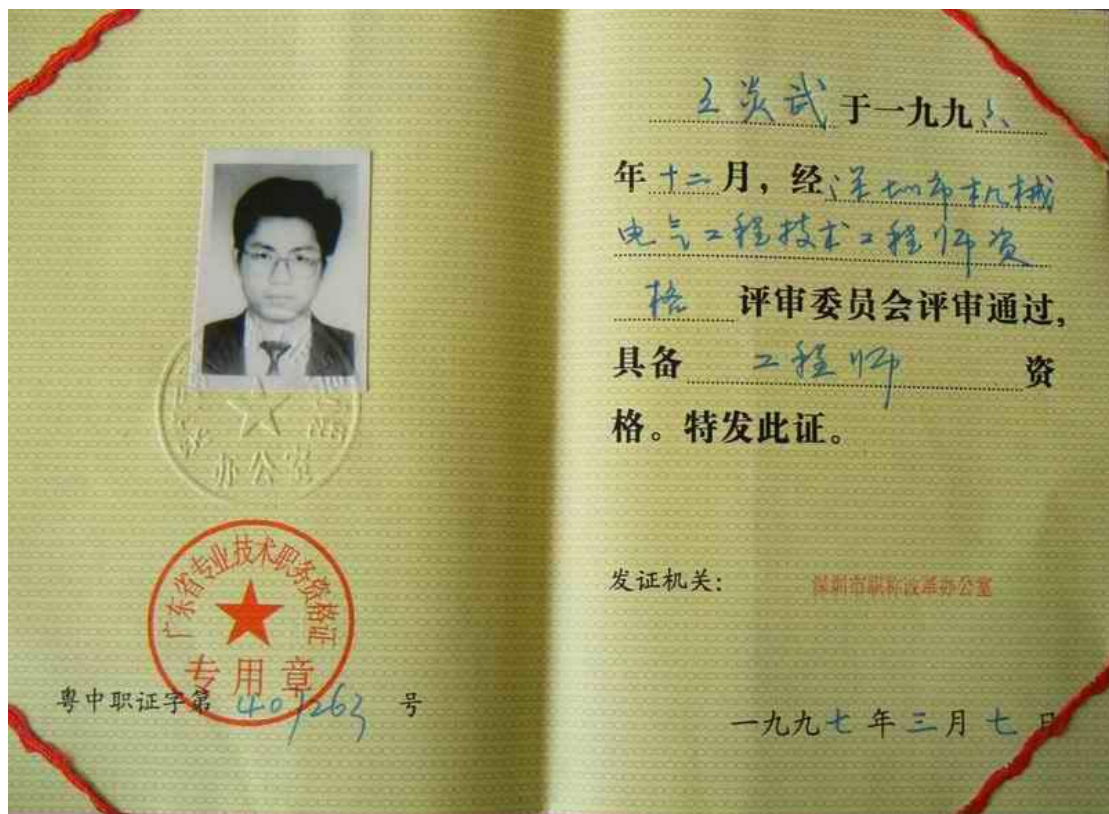 办公室
广东省专业技术职务资格证
专用章
粤中职证字第 401263 号
王炎武于一九九六
年十二月,经深圳市机械
电气工程技术工程师资
格 评审委员会评审通过,
具备 工程师 资
格。特发此证。
发证机关: 深圳市职称改革办公室
一九九七年三月七日